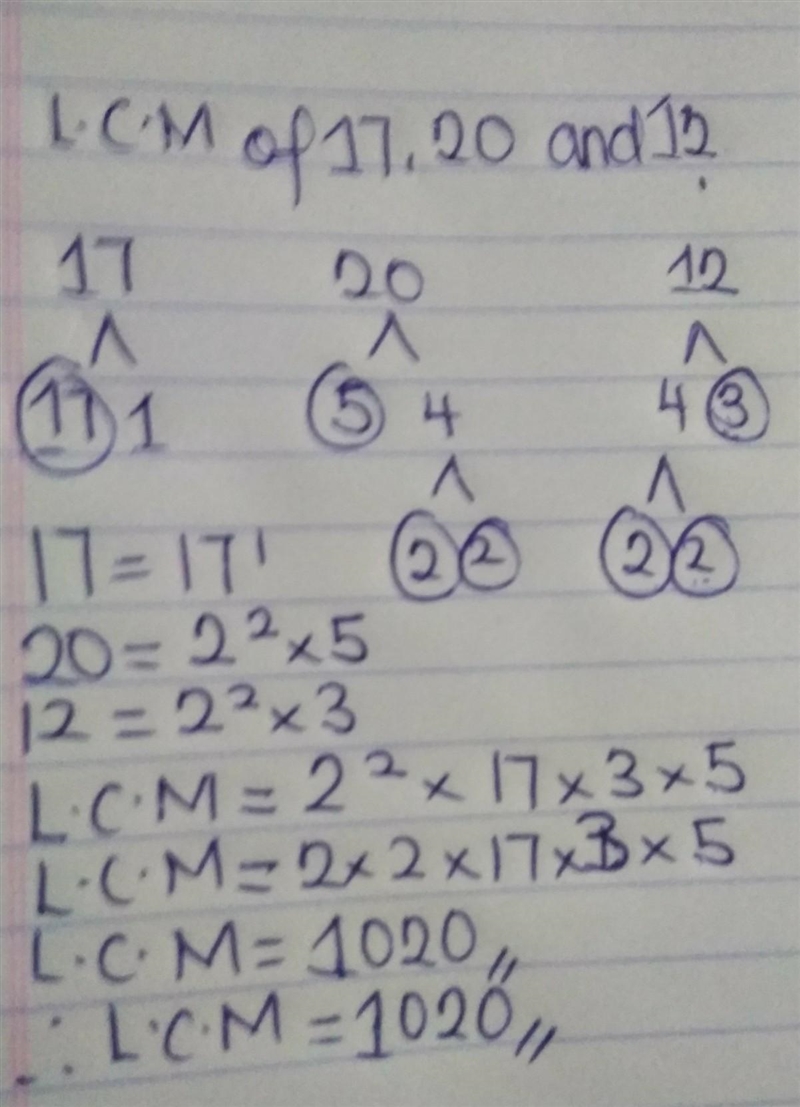 L.C.M of 17, 20 and 12
17 20 12
17 1 5 4 4 3
2 2 2 2
17 = 17¹
20 = 2² × 5
12 = 2² × 3
L.C.M = 2² × 17 × 3 × 5
L.C.M = 2 × 2 × 17 × 3 × 5
L.C.M = 1020,,
∴ L.C.M = 1020,,